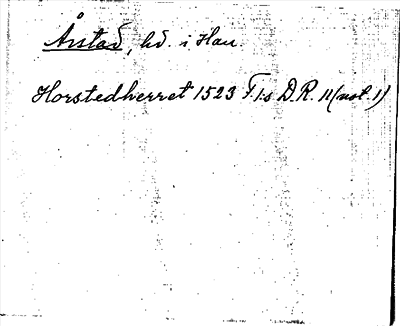 Årstad, hd. i Hall.
Horstedherret 1523 F I:s D.R. 11 (not. 1)